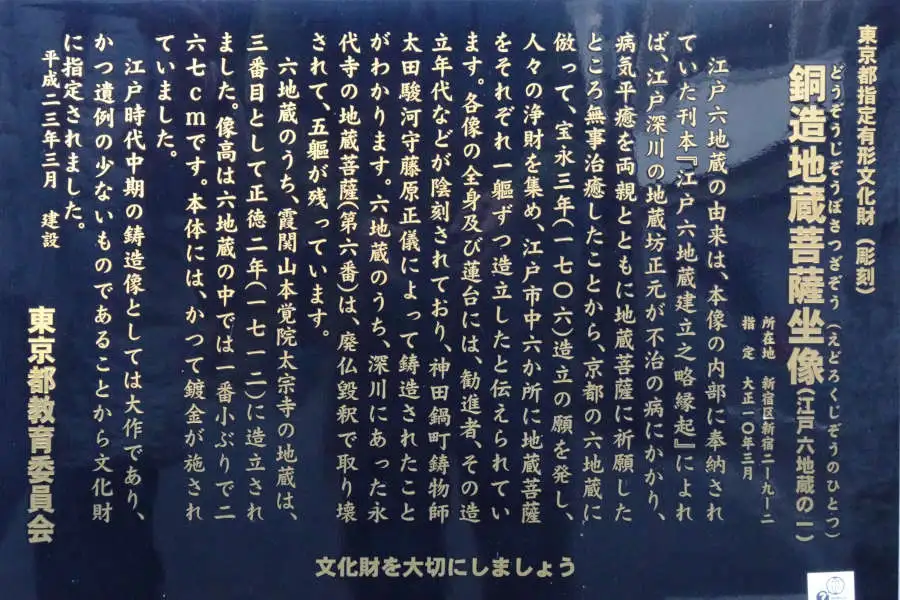 東京都指定有形文化財（彫刻）
どうぞうじぞうぼさつざぞう（えどろくじぞうのひとつ）
銅造地蔵菩薩坐像（江戸六地蔵の一）
所在地　新宿区新宿二－九－二
指　定　大正一〇年三月
江戸六地蔵の由来は、本像の内部に奉納され
ていた刊本『江戸六地蔵建立之略縁起』によれ
ば、江戸深川の地蔵坊正元が不治の病にかかり、
病気平癒を両親とともに地蔵菩薩に祈願した
ところ無事治癒したことから、京都の六地蔵に
倣って、宝永三年（一七〇六）造立の願を発し、
人々の浄財を集め、江戸市中六か所に地蔵菩薩
をそれぞれ一軀ずつ造立したと伝えられてい
ます。各像の全身及び蓮台には、勧進者、その造
立年代などが陰刻されており、神田鍋町鋳物師
太田駿河守藤原正儀によって鋳造されたこと
がわかります。六地蔵のうち、深川にあった永
代寺の地蔵菩薩（第六番）は、廃仏毀釈で取り壊
されて、五軀が残っています。
六地蔵のうち、霞関山本覚院太宗寺の地蔵は、
三番目として正徳二年（一七一二）に造立され
ました。像高は六地蔵の中では一番小ぶりで二
六七cmです。本体には、かつて鍍金が施され
ていました。
江戸時代中期の鋳造像としては大作であり、
かつ遺例の少ないものであることから文化財
に指定されました。
平成二三年三月　建設
東京都教育委員会
文化財を大切にしましょう